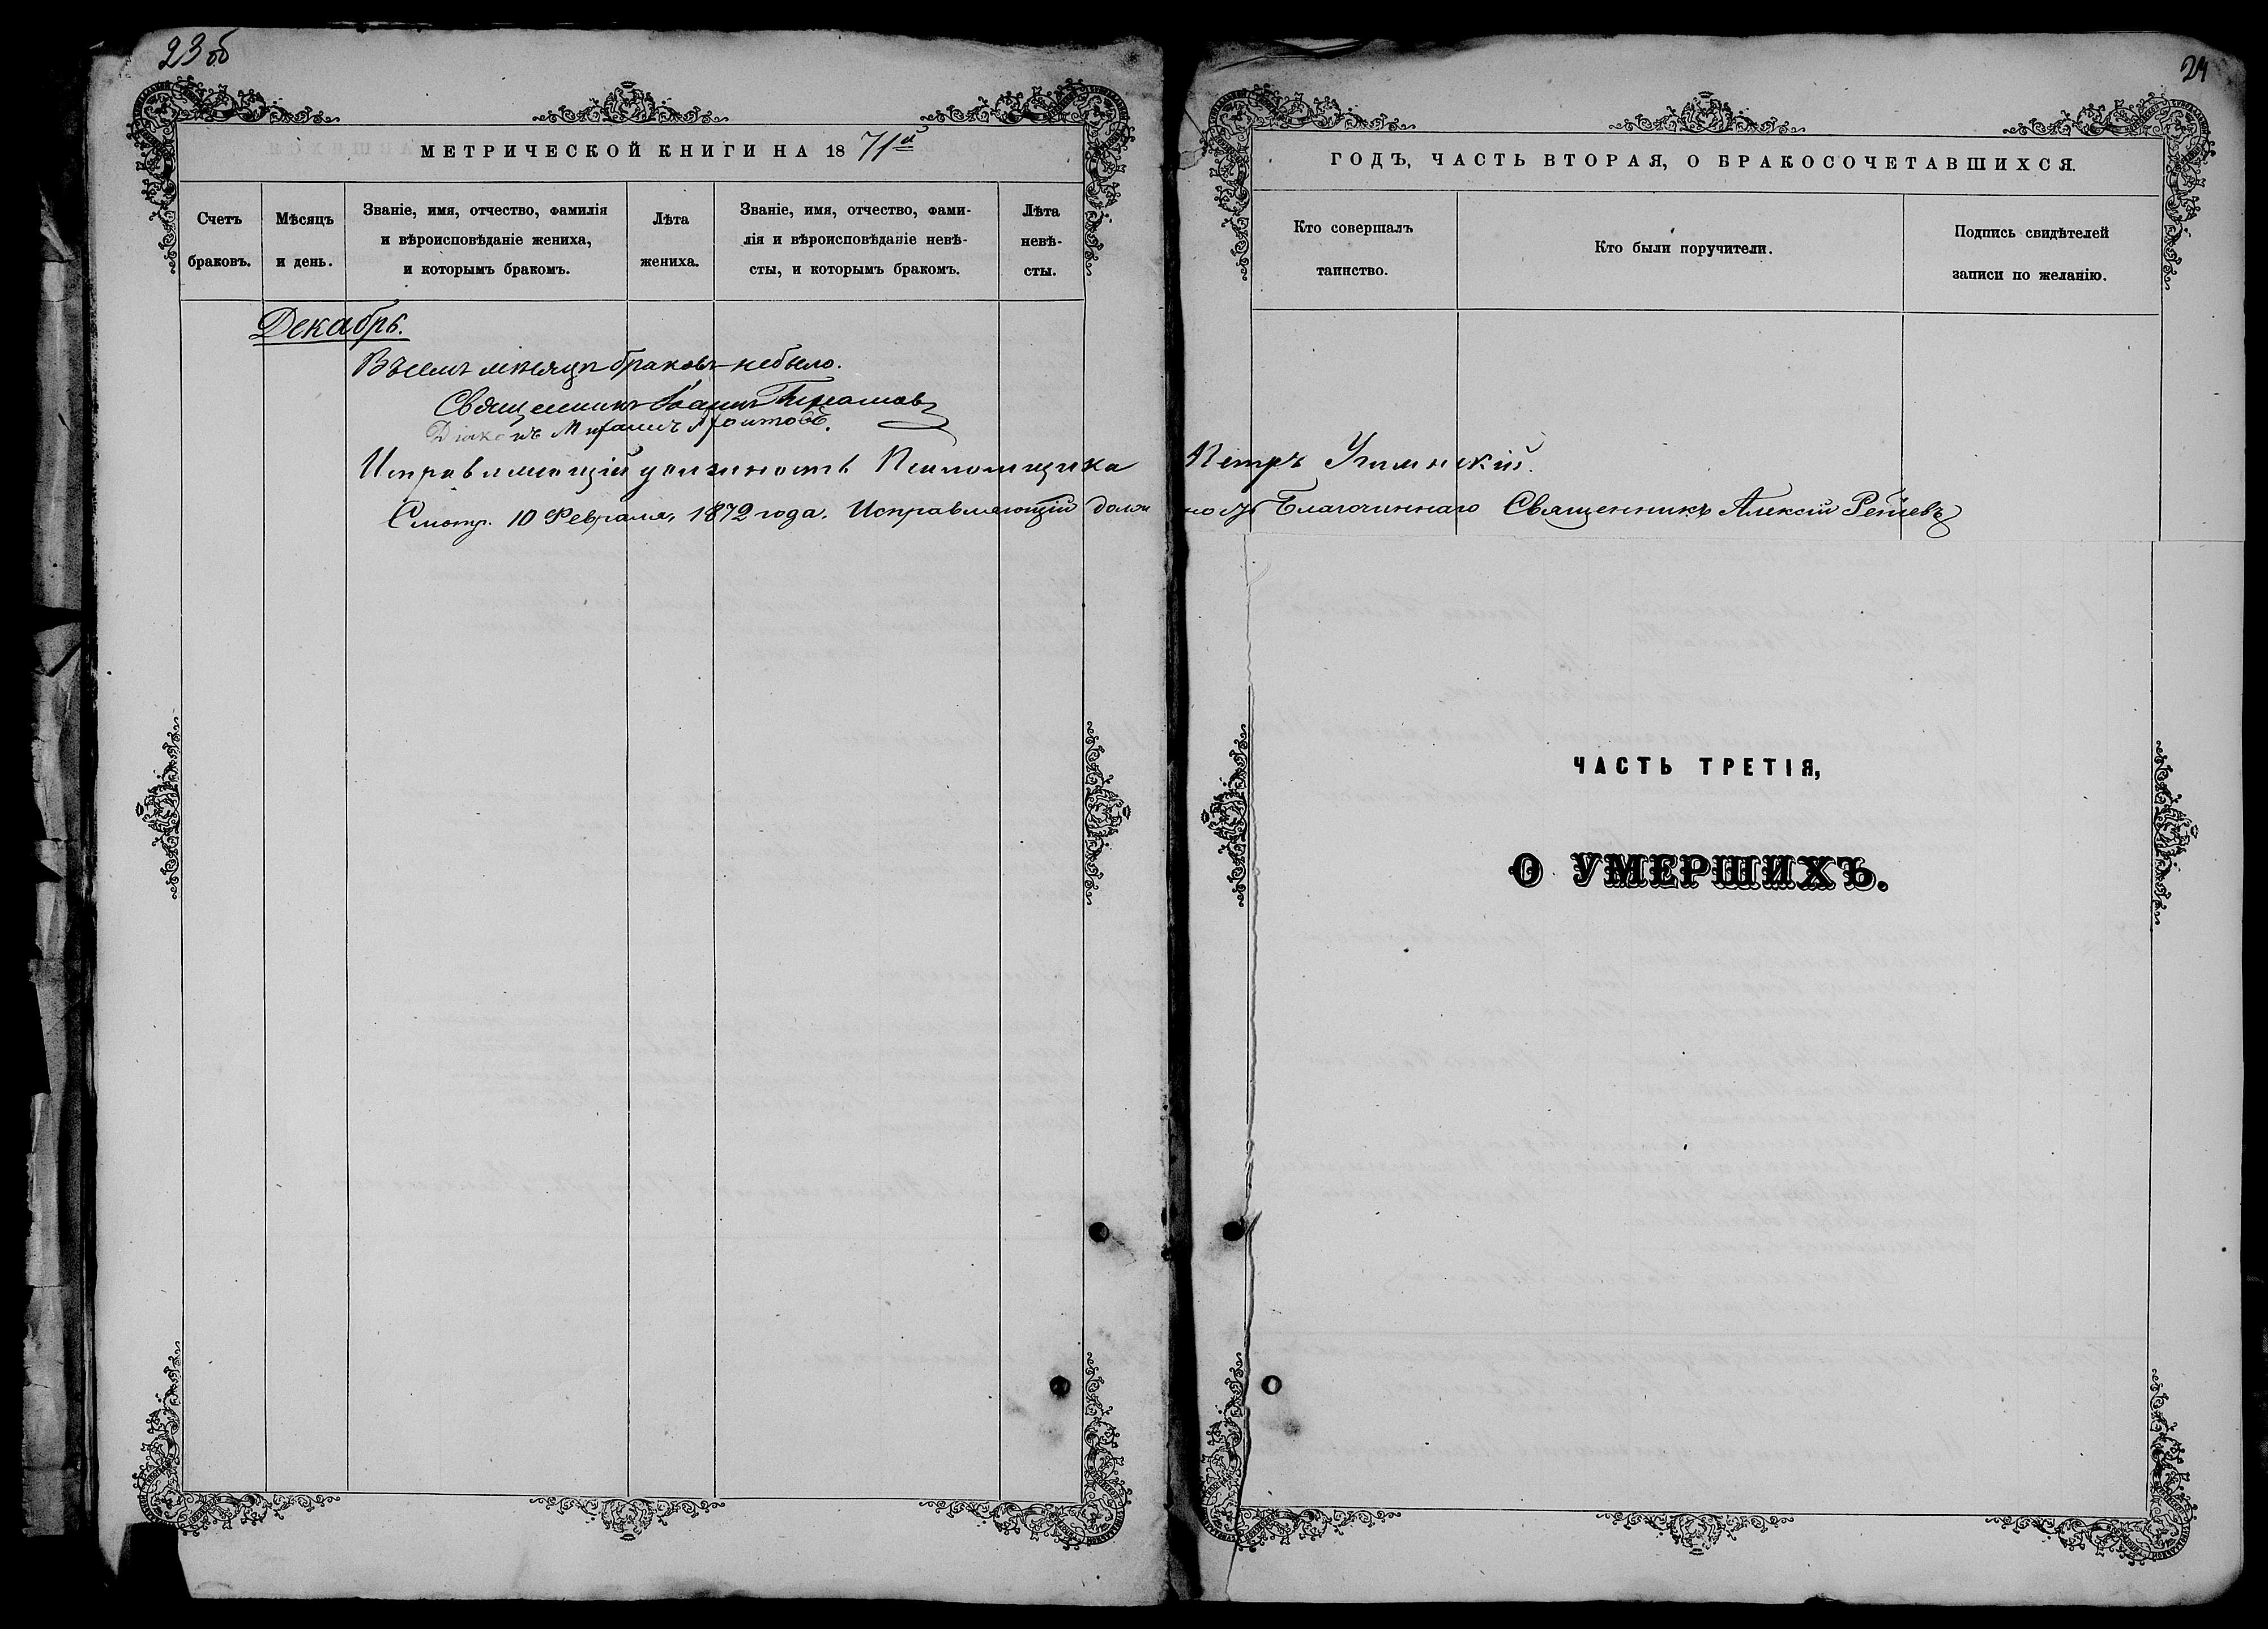 23 об
МЕТРИЧЕСКОЙ КНИГИ НА 1871й
Счетъ браковъ.
Мѣсяцъ и день.
Званіе, имя, отчество, фамилія
и вѣроисповѣданіе жениха,
и которымъ бракомъ.
Лѣта жениха.
Званіе, имя, отчество, фами-
лія и вѣроисповѣданіе невѣ-
сты, и которымъ бракомъ.
Лѣта невѣ-
сты.
Декабрь.
Въ семъ мѣсяцѣ браковъ небыло.
Священникъ Іоаннъ
Діаконъ
Исправляющій должность Псаломщика Петръ
Смотр. 10 Февраля, 1872 года. Исправляющій должность Благочиннаго Священникъ Алексій
24
ГОДЪ, ЧАСТЬ ВТОРАЯ, О БРАКОСОЧЕТАВШИХСЯ.
Кто совершалъ
таинство.
Кто были поручители.
Подпись свидѣтелей
записи по желанію.
ЧАСТЬ ТРЕТІЯ,
О УМЕРШИХЪ.